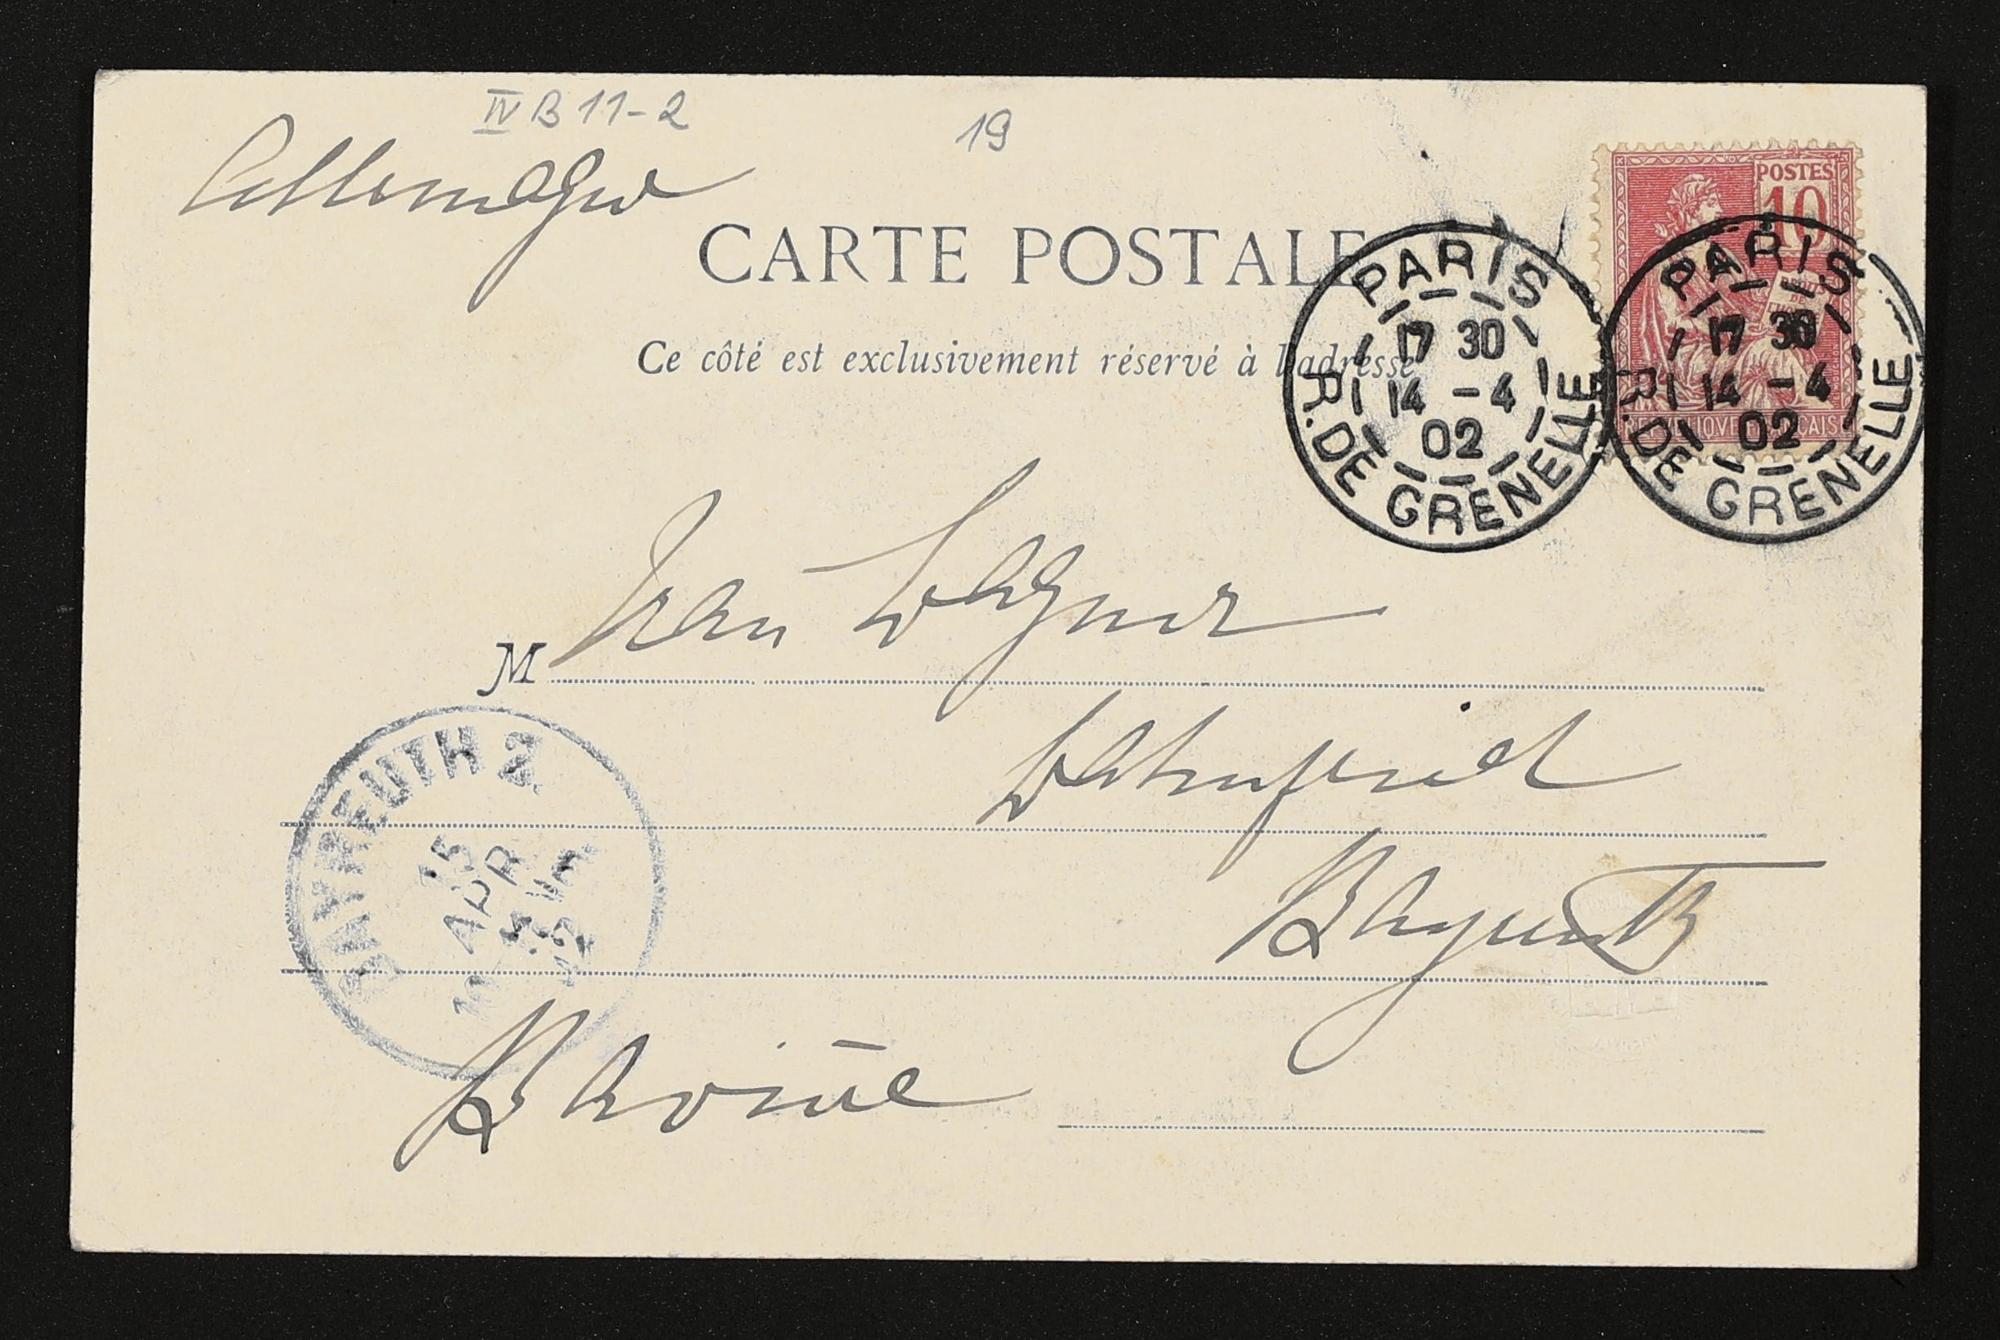 IV B 11-2
19
Allemagne
CARTE POSTALE
Ce côté est exclusivement réservé à l'adresse
POSTES
10
RÉPUBLIQUE FRANÇAISE
PARIS
17 30
14 -4
02
R. DE GRENELLE
PARIS
17 30
14 -4
02
R. DE GRENELLE
M Frau Wagner
Wahnfried
Bayreuth
Bavière
BAYREUTH 2
15
APR